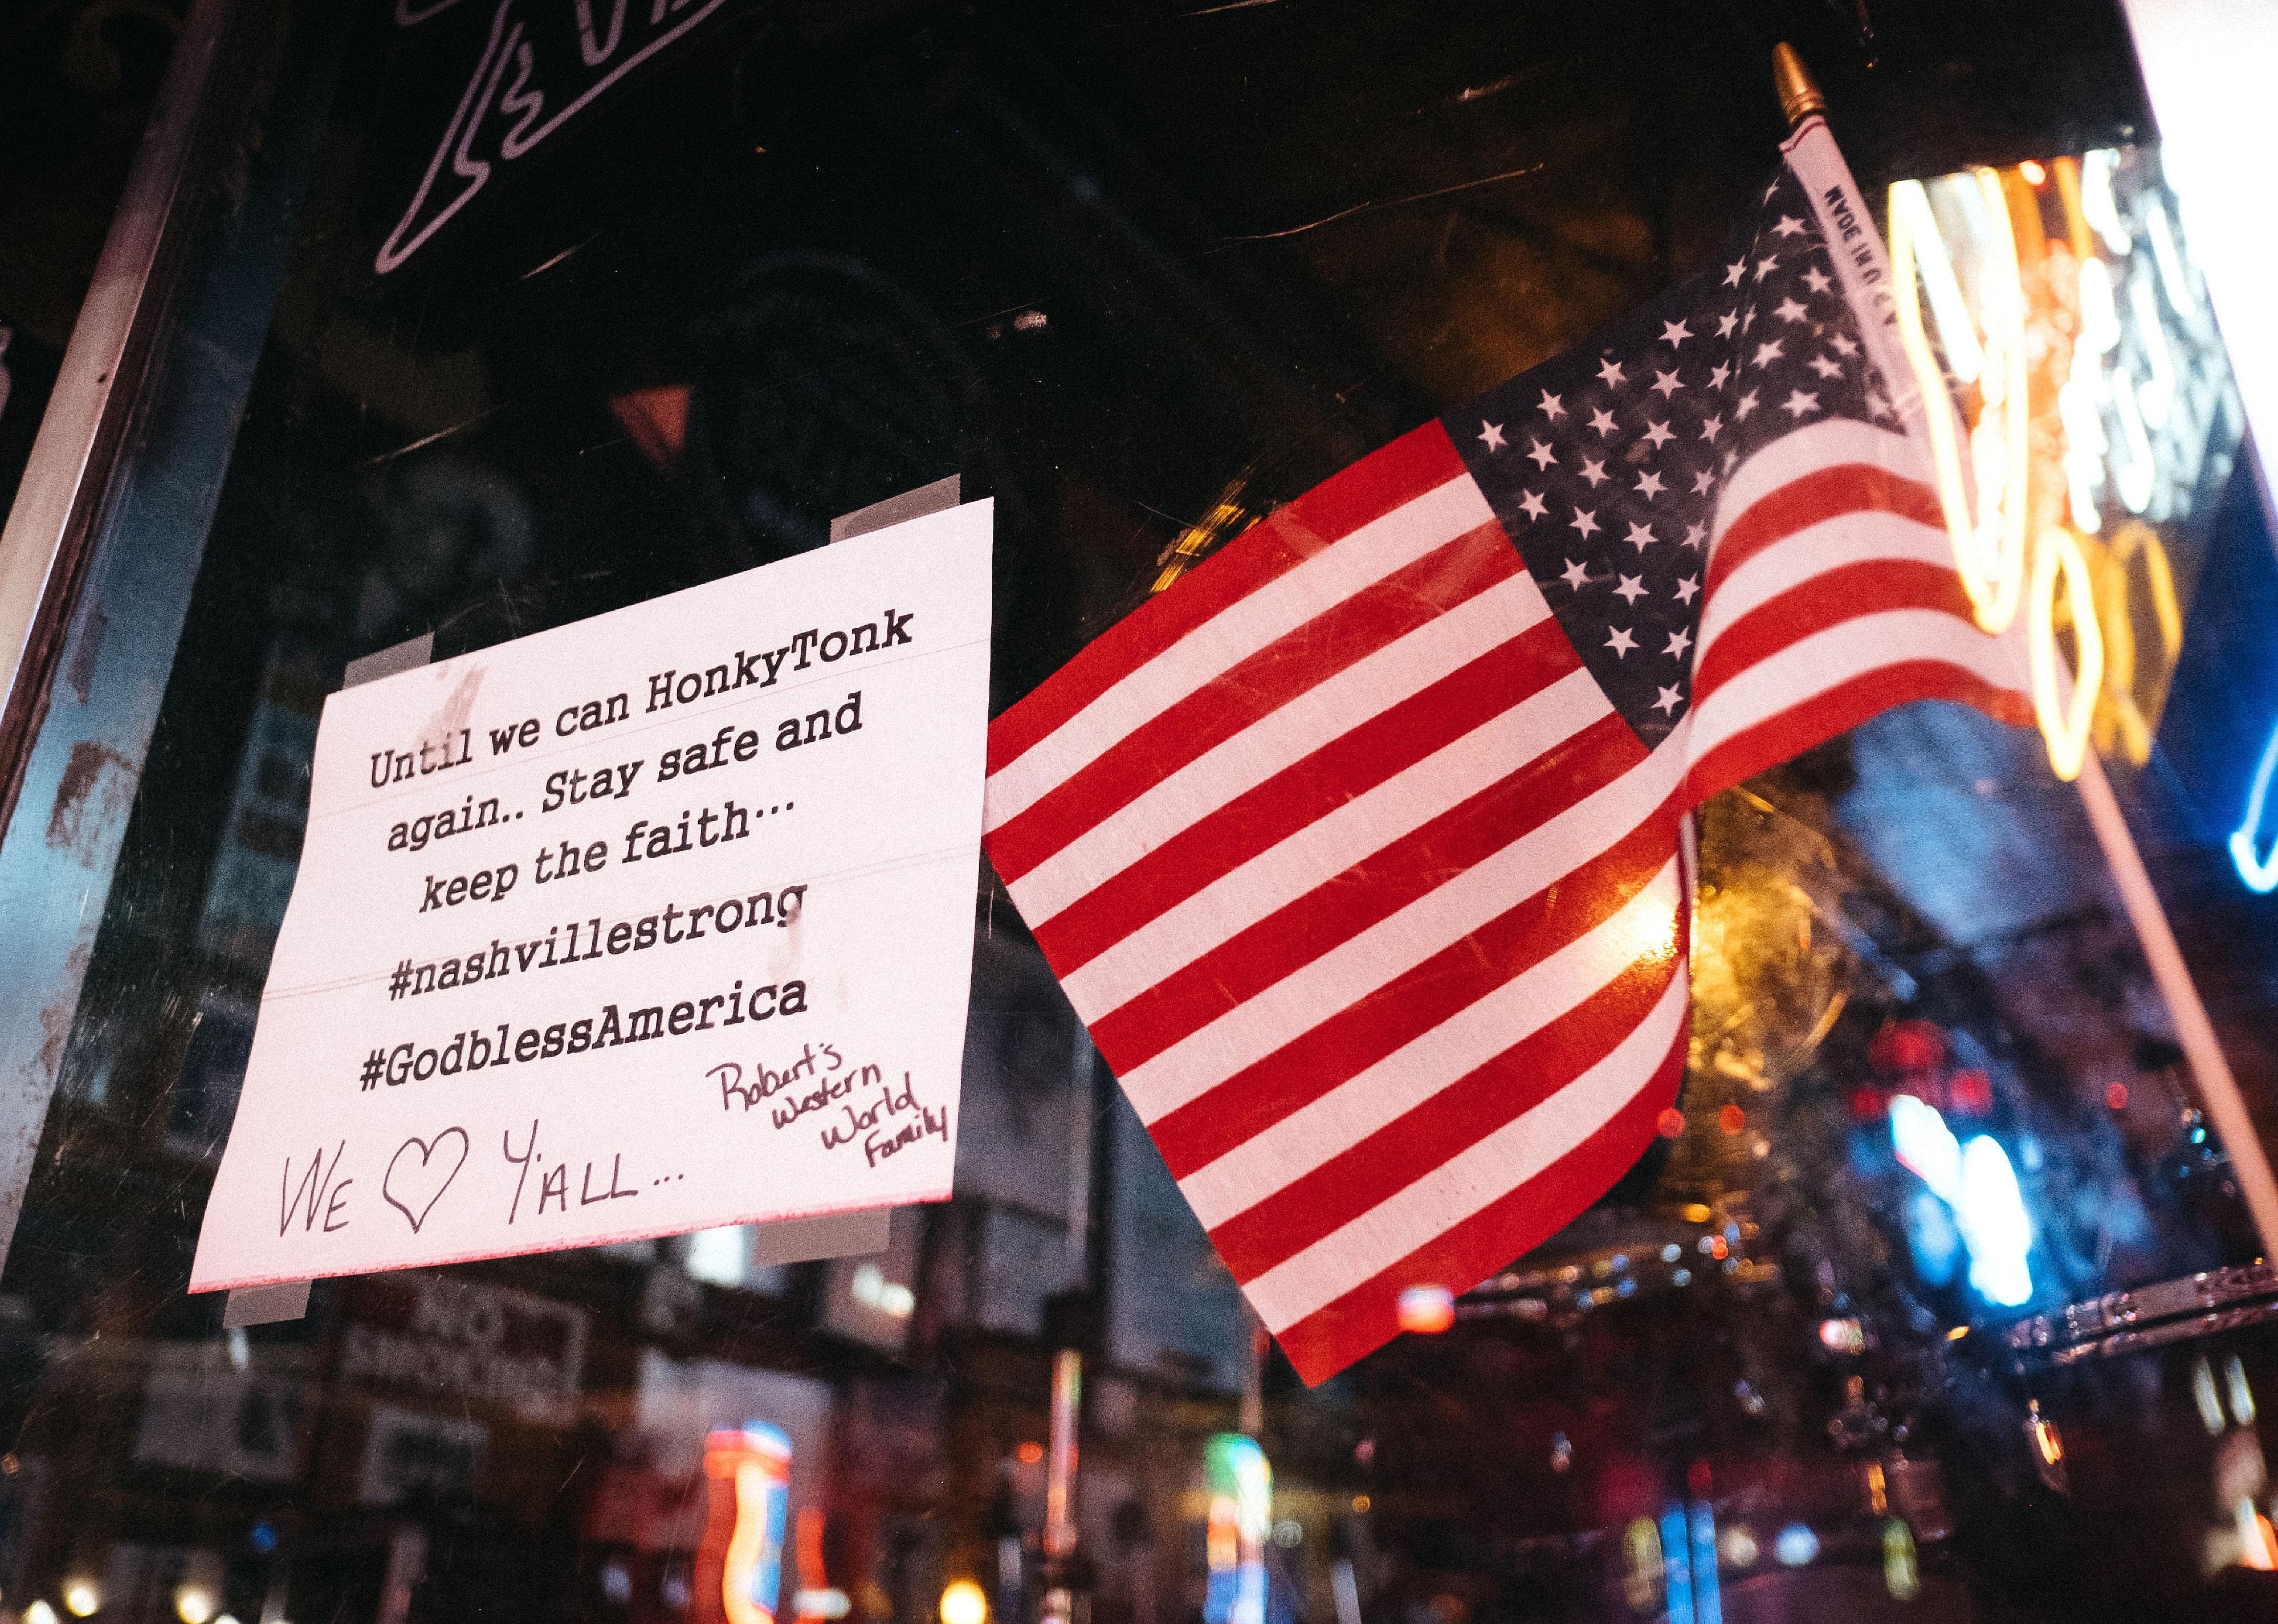 MADE IN U.S.A.
Until we can HonkyTonk
again.. Stay safe and
keep the faith...
#nashvillestrong
#GodblessAmerica
Robert's
Western
World
Family
WE ♡ Y'ALL...
NO
SMOKING